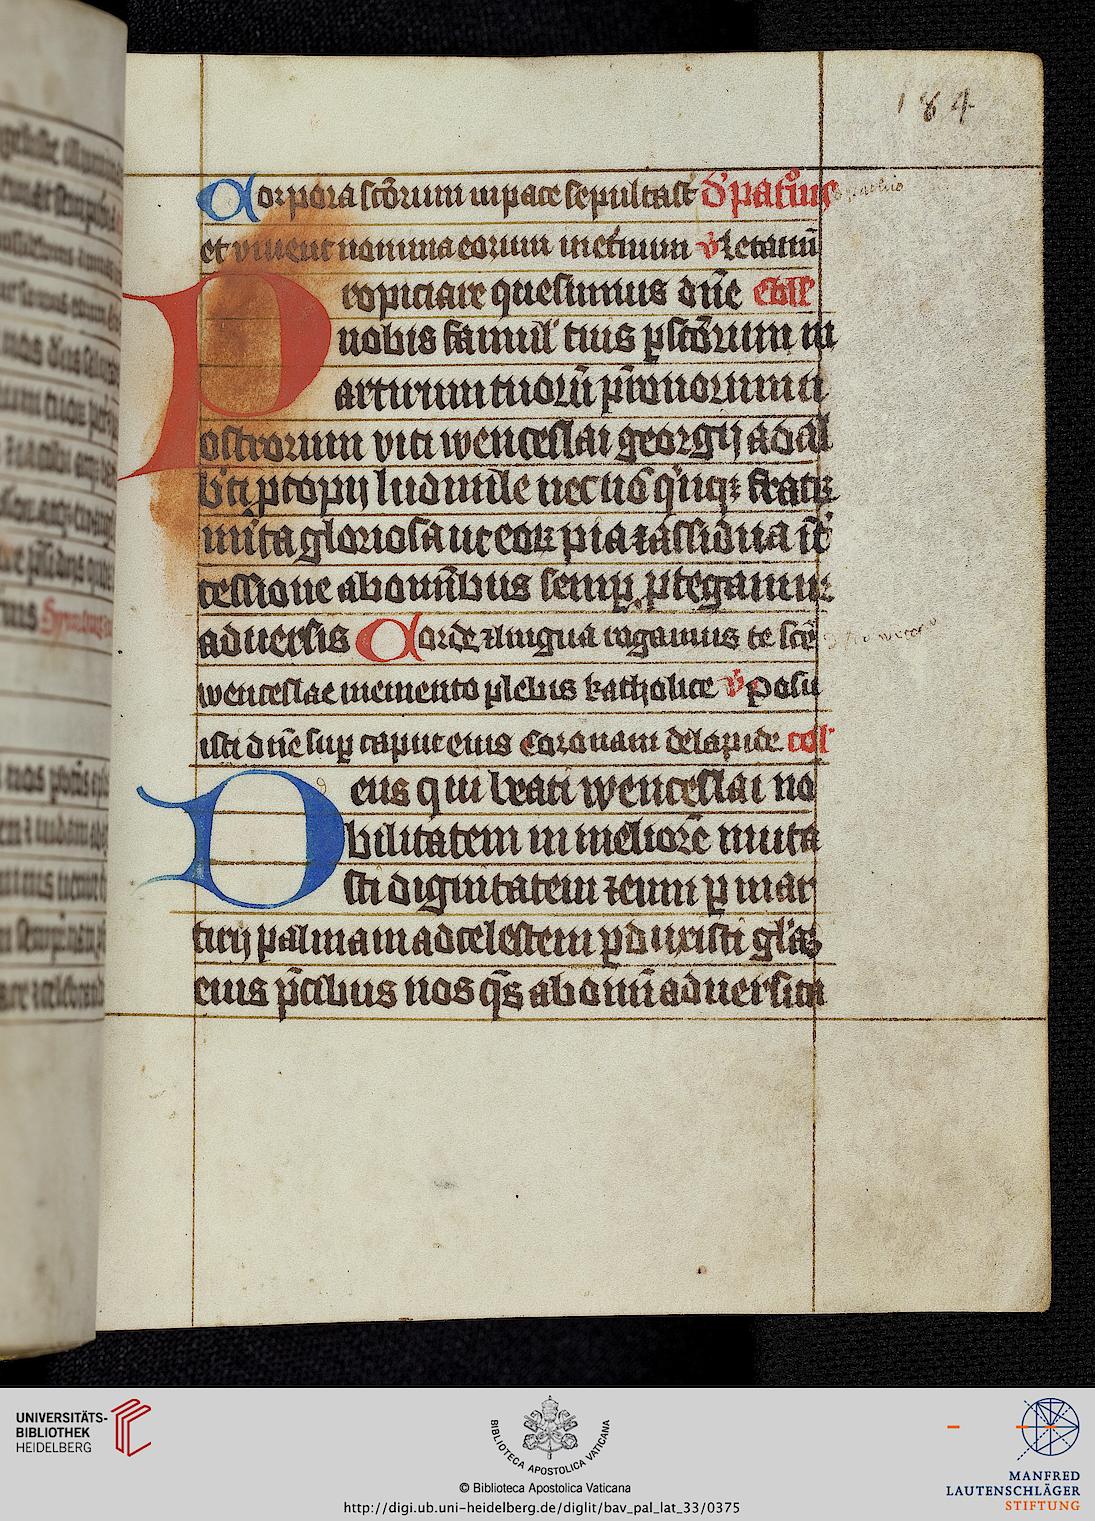 184
Corpora sco̅rum in pace sepulta st̅ D' pat̅nis
et vivent nomina eorum in et̅num v̅ Letamĩ
Propiciare quesumus dn̅e Coll̅
nobis famul' tuis p̱ sco̅rum m
artirum tuoru̅ p̅ronorum n
ostrorum viti wenceslai georgij adal
b'ti p̱copij ludmile nec no̅ q'nqꝫ fratꝝ
mi̅ta gloriosa ut eoꝝ pia ⁊ assidua i̅t̅
cessione ab om̅ibus semp̱ p̱tegamur
adversis Corde ⁊ lingua rogamus te sce̅
wenceslae memento plebis katholice v̅ Posu
isti dn̅e sup̱ caput eius Coronam de lapide coll̅
Deus qui beati wenceslai no
bilitatem in meliore̅ muta
sti dignitatem ⁊ eum p̱ mar
tirij palmam ad celestem p̱duxisti gl'ia̅
eius p̅cibus nos q̅s ab om̅i adversita
UNIVERSITÄTS-
BIBLIOTHEK
HEIDELBERG
BIBLIOTECA APOSTOLICA VATICANA
© Biblioteca Apostolica Vaticana
http://digi.ub.uni-heidelberg.de/diglit/bav_pal_lat_33/0375
MANFRED
LAUTENSCHLÄGER
STIFTUNG